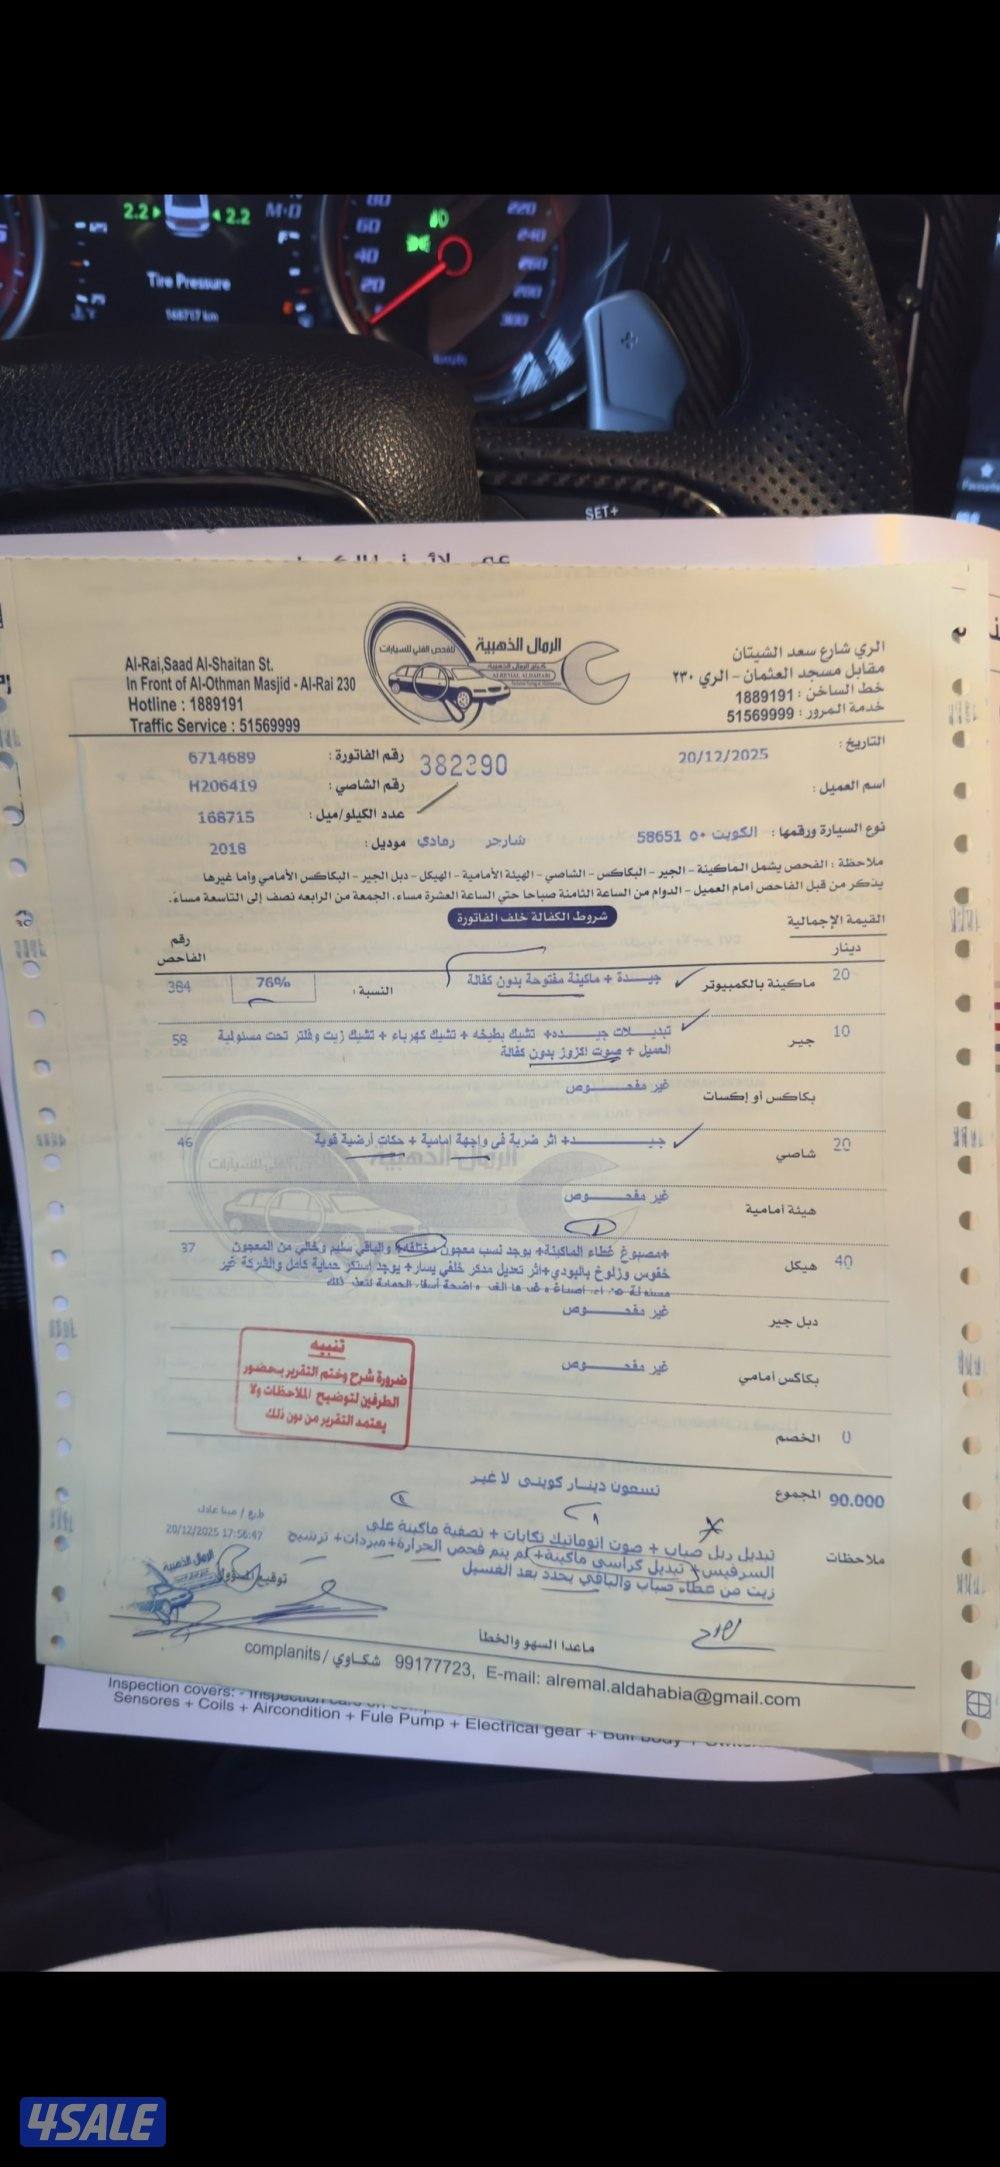 2.2
2.2
M·D
Tire Pressure
168717 km
20
40
60
80
220
240
260
280
300
km/h
SET+
الرمال الذهبية
للفحص الفني للسيارات
ALREMAL ALDAHABI
Al-Rai,Saad Al-Shaitan St.
In Front of Al-Othman Masjid - Al-Rai 230
Hotline : 1889191
Traffic Service : 51569999
الري شارع سعد الشيتان
مقابل مسجد العثمان – الري ٢٣٠
خط الساخن : 1889191
خدمة المرور : 51569999
التاريخ : 20/12/2025
382390
رقم الفاتورة : 6714689
اسم العميل :
رقم الشاصي : H206419
عدد الكيلو/ميل : 168715
نوع السيارة ورقمها : الكويت ٥٠ 58651 شارجر رمادي
موديل : 2018
ملاحظة : الفحص يشمل الماكينة - الجير - البكاكس - الشاصي - الهيئة الأمامية - الهيكل - دبل الجير - البكاكس الأمامي وأما غيرها
يذكر من قبل الفاحص أمام العميل - الدوام من الساعة الثامنة صباحا حتي الساعة العشرة مساء، الجمعة من الرابعه نصف إلى التاسعة مساءً.
شروط الكفالة خلف الفاتورة
القيمة الإجمالية
دينار
رقم الفاحص
20 ماكينة بالكمبيوتر جيـــدة + ماكينة مفتوحة بدون كفالة النسبة : 76% 384
10 جير تبديـلات جيـــده+ تشيك بطيخه + تشيك كهرباء + تشيك زيت وفلتر تحت مسئولية 58
العميل + صوت اكزوز بدون كفالة
بكاكس أو إكسات غير مفحــــوص
20 شاصي جيــــــد+ اثر ضربة في واجهة إمامية + حكات أرضية قوية 46
هيئة أمامية غير مفحــــوص
40 هيكل +مصبوغ غطاء الماكينة+ يوجد نسب معجون مختلفة+ والباقي سليم وخالي من المعجون 37
خفوس وزلوخ بالبودي+اثر تعديل مدكر خلفي يسار+ يوجد إستكر حماية كامل والشركة غير
دبل جير غير مفحــــوص
بكاكس أمامي غير مفحــــوص
تنبيه
ضرورة شرح وختم التقرير بحضور
الطرفين لتوضيح الملاحظات ولا
يعتمد التقرير من دون ذلك
0 الخصم
90.000 المجموع تسعون دينار كويتي لا غير
ملاحظات تبديل ربل صباب + صوت اتوماتيك تكايات + تصفية ماكينة على
السرفيس+ تبديل كراسي ماكينة+ لم يتم فحص الحرارة+مبردات+ ترشيح
زيت من غطاء صباب والباقي يحدد بعد الغسيل
20/12/2025 17:56:47
توقيع المسؤول
ماعدا السهو والخطأ
complanits / شكاوي 99177723, E-mail: alremal.aldahabia@gmail.com
Inspection covers:
Sensores + Coils + Aircondition + Fule Pump + Electrical gear + Bull body +
4SALE